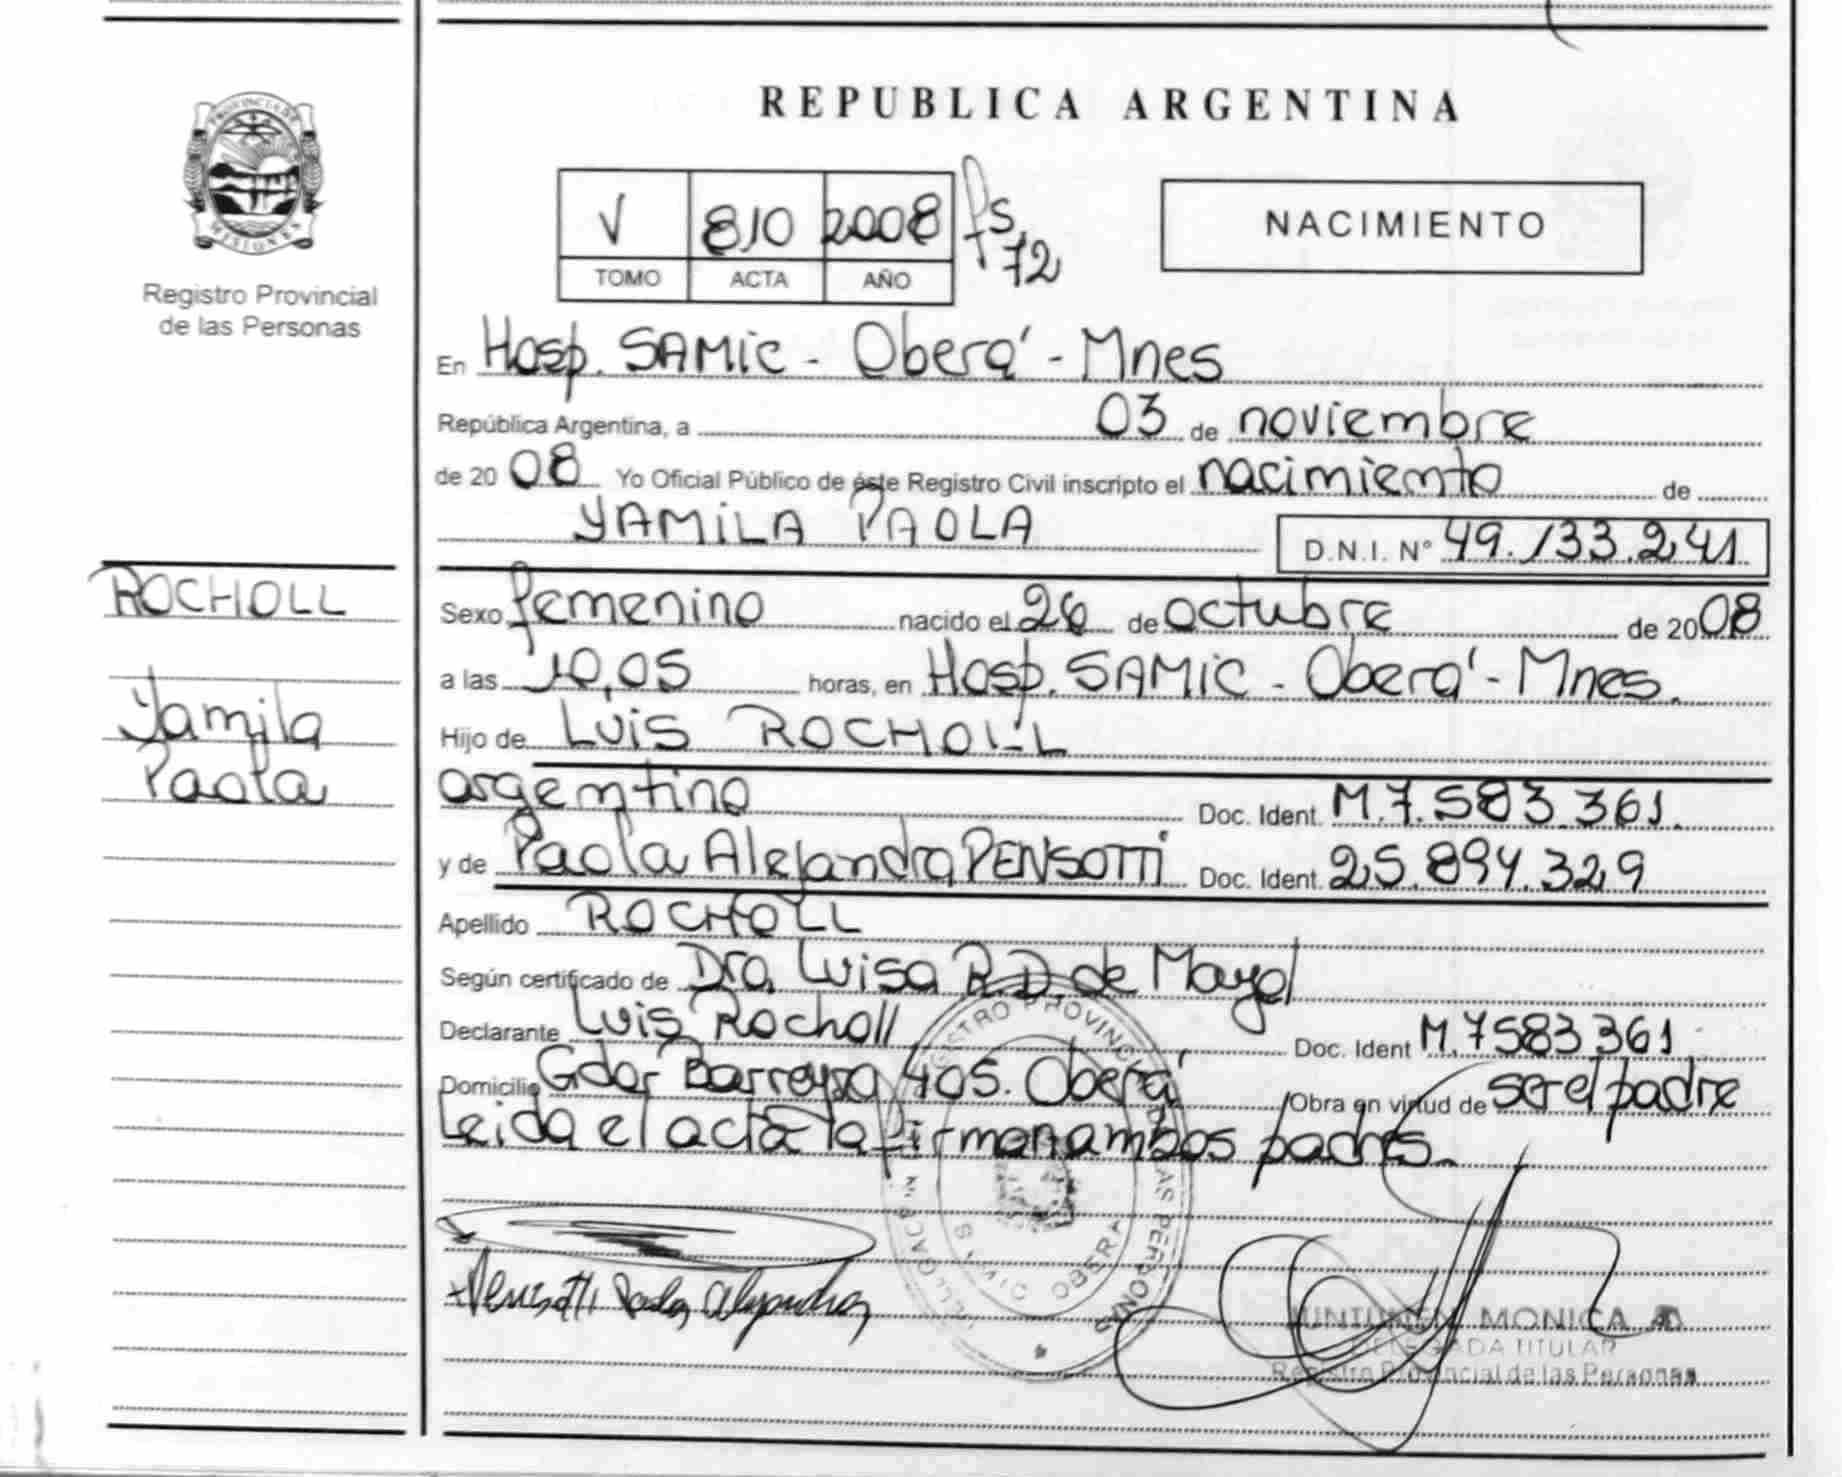 PROVINCIA DE
MISIONES
Registro Provincial
de las Personas
REPUBLICA ARGENTINA
V 810 2008 fs 72
TOMO ACTA AÑO
NACIMIENTO
En Hosp. SAMIC - Oberá - Mnes
República Argentina, a 03 de noviembre
de 20 08 Yo Oficial Público de éste Registro Civil inscripto el nacimiento de
YAMILA PAOLA D.N.I. Nº 49.133.241
ROCHOLL
Yamila
Paola
Sexo femenino nacido el 26 de octubre de 2008
a las 10,05 horas, en Hosp. SAMIC - Oberá - Mnes.
Hijo de Luis ROCHOLL
argentino Doc. Ident. M.7.583.361.
y de Paola Alejandra PENSOTTI Doc. Ident. 25.894.329
Apellido ROCHOLL
Según certificado de Dra. Luisa R.D. de Mayol
Declarante Luis Rocholl Doc. Ident M.7583361
Domicilio Gdor Barreyro 405. Oberá Obra en virtud de ser el padre
Leida el acta la firman ambos padres.
REGISTRO PROVINCIAL DE LAS PERSONAS
OBERA
Pensotti Paola Alejandra
MONICA
DELEGADA TITULAR
Registro Provincial de las Personas